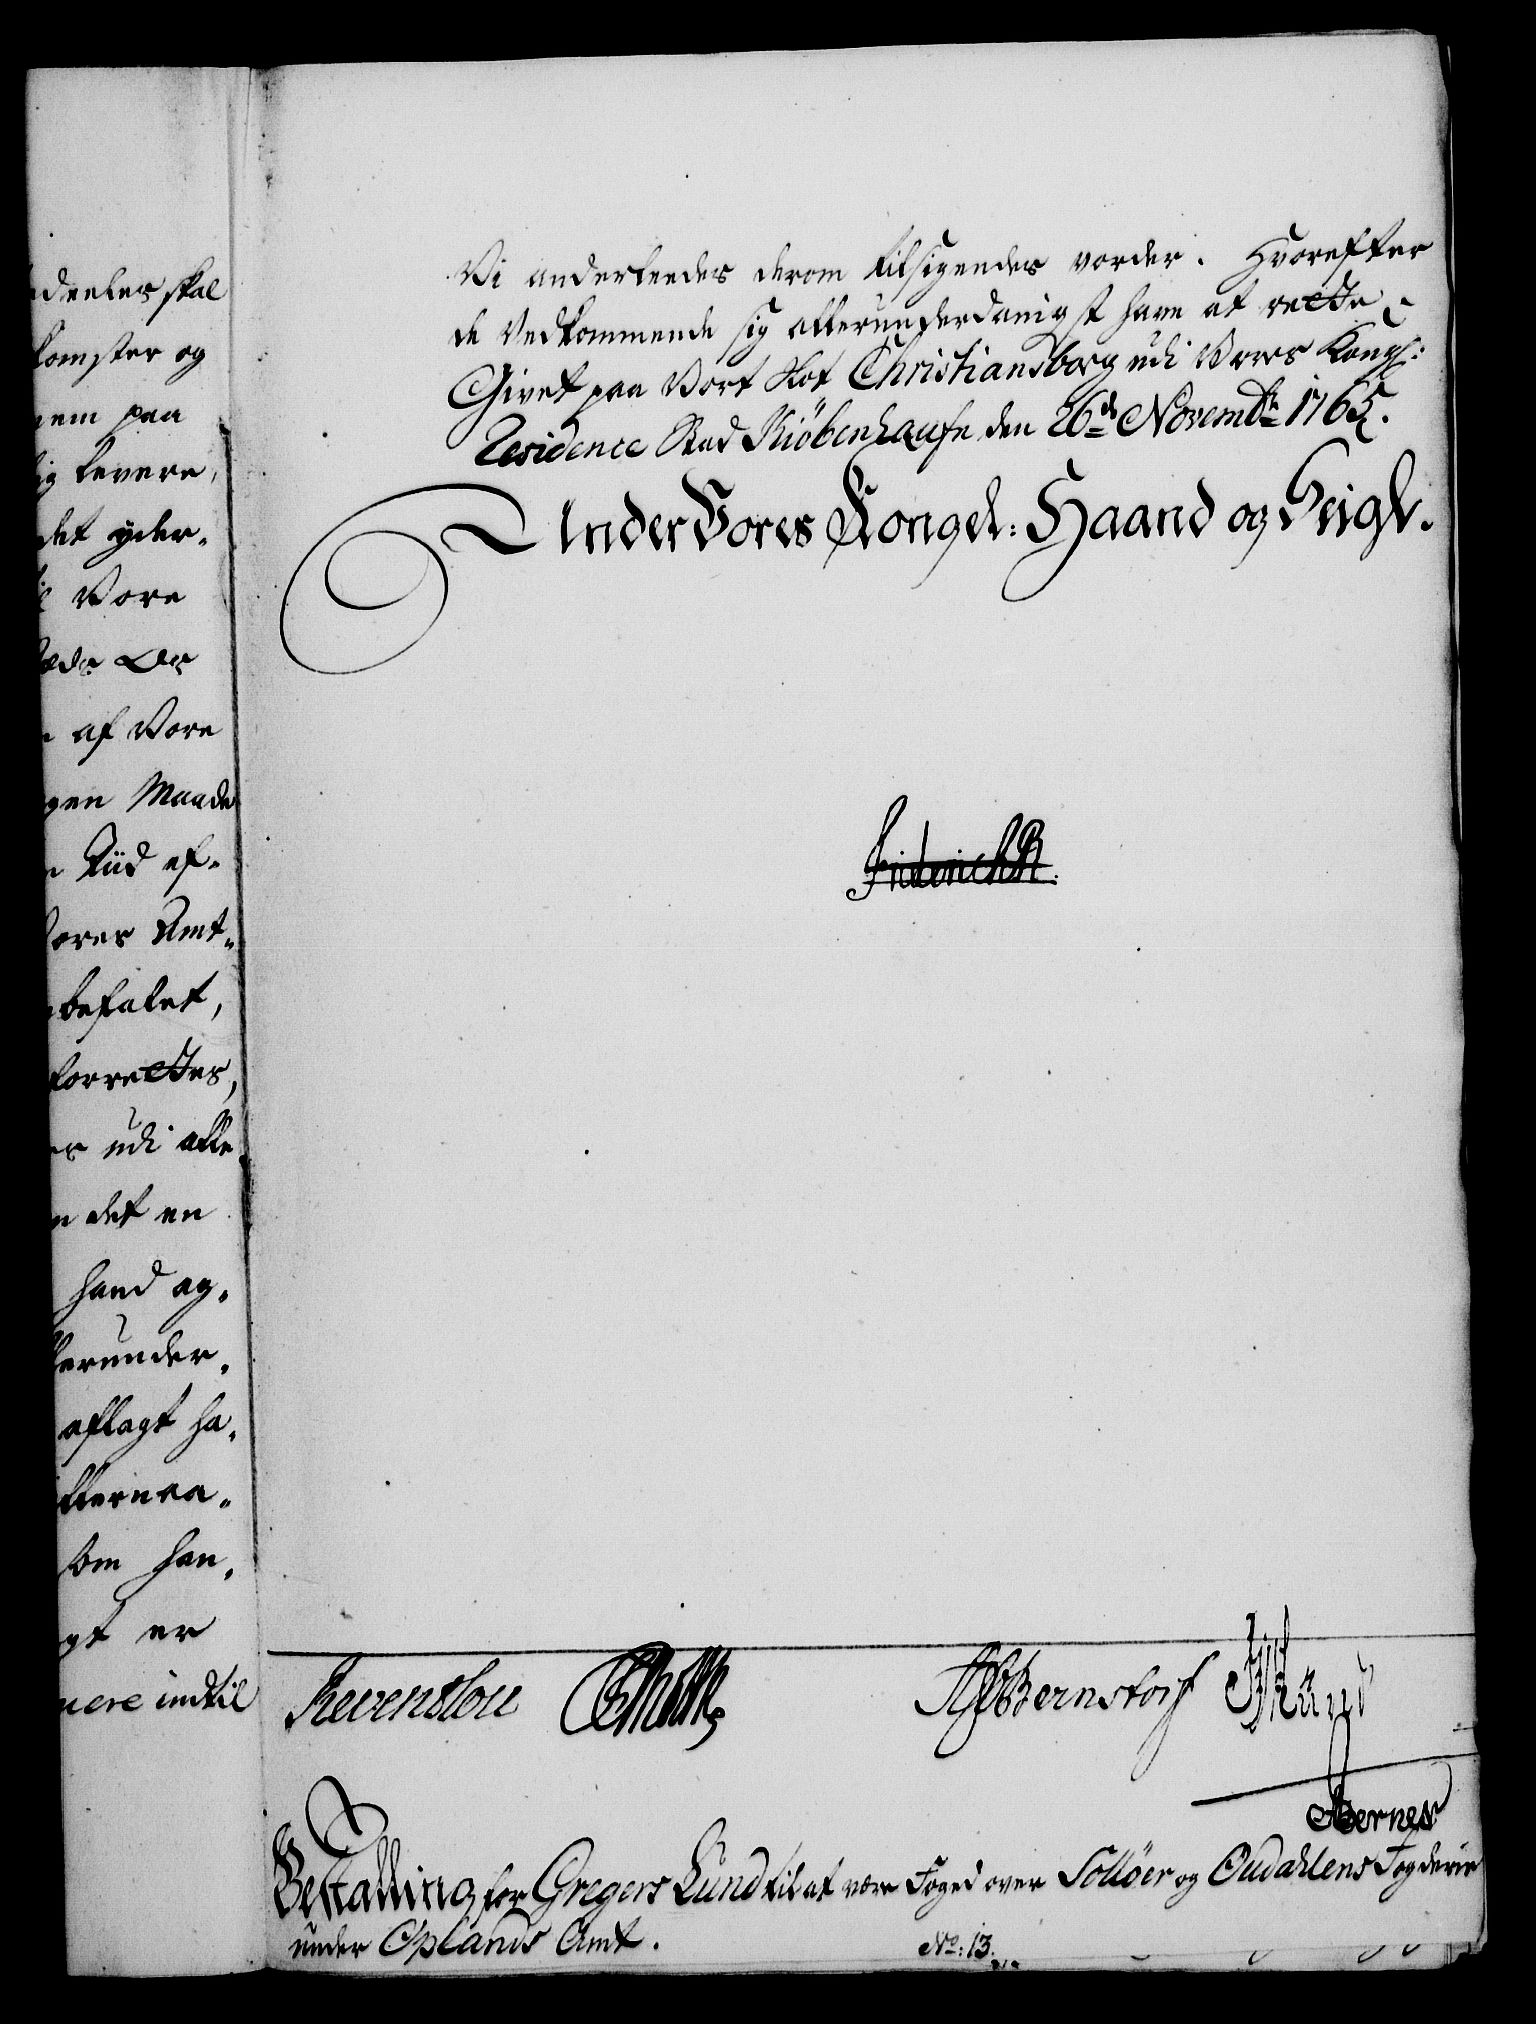 deeles skal
komster og
nem paa
lig levere,
det yder-
til Vore
af Vore
gen Maade
Tiid ef-
Vores Amt-
befalet,
forrettes,
udi alle
det en
hand og-
lerunder-
aflagt ha-
efternaa-
som han-
gt er
mere indtil
Vi anderleedes derom tilsigendes vorder. Hvorefter
de Vedkommende sig allerunderdanigst have at rette.
Givet paa Vort Slot Christiansborg udi Vores Kongl:
Residence Stad Kiöbenhaufn den 26de Novembr: 1765.
Under Vores Kongel: Haand og Seigl.
Friderich R.
Reventlou
AGBernstorf
Berner
Bestalling for Gregers Lund til at være Foged over Sollöer og Oudahlens Fogderie
under Oplands Amt.
No: 13.